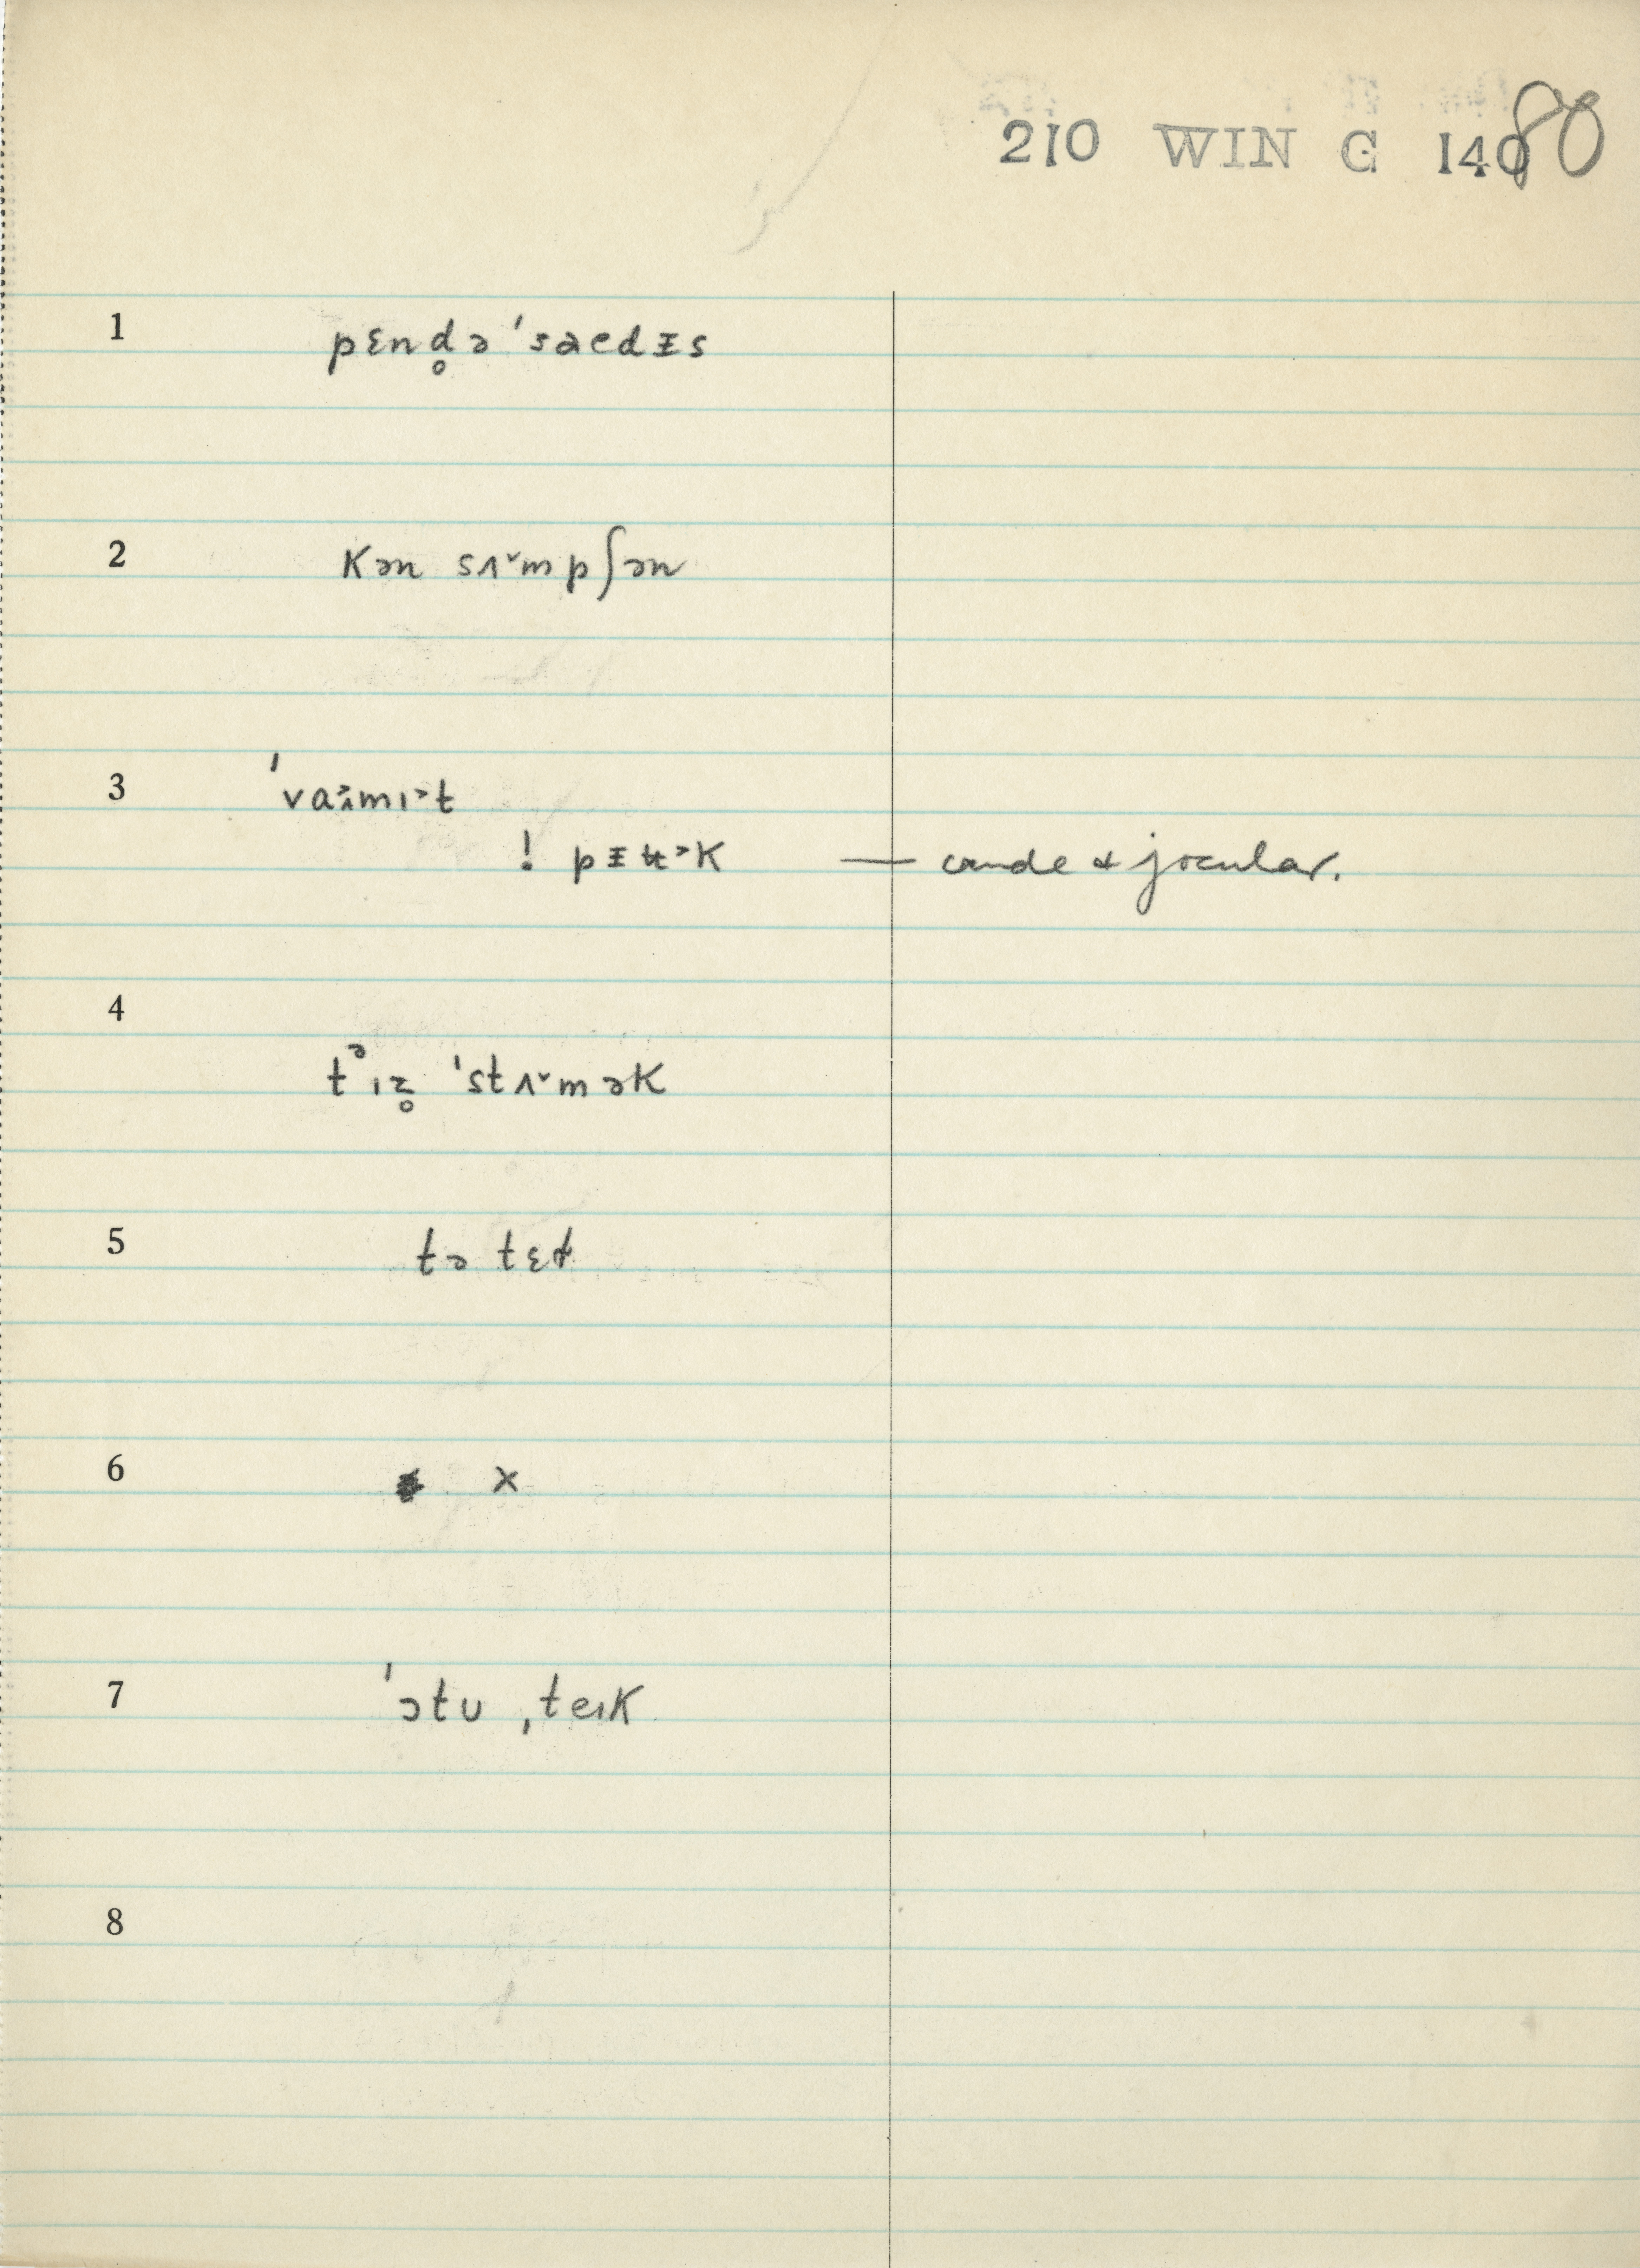 210 WIN G 140 80
1 pɛnd̥ə ˈsaedɪ̵s
2 kən sʌ˅mpʃən
3 ˈvaɪmɪ˃t
! pɪ̵ʉ˃k — crude & jocular.
4
tᵊɪz̥ ˈstʌ˅mək
5 tə tɛɫ
6 x
7 ˈɔtʊ ˌteɪk
8